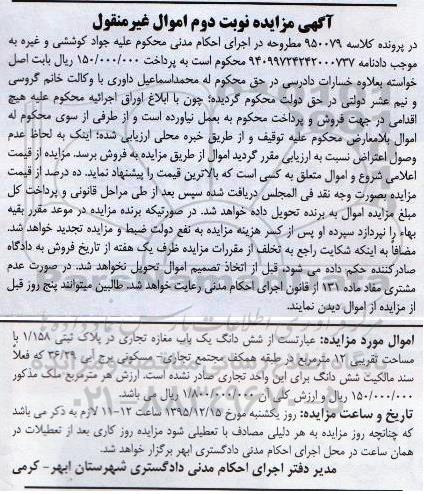 آگهی مزایده نوبت دوم اموال غیرمنقول
در پرونده کلاسه ۹۵۰۰۷۹ مطروحه در اجرای احکام مدنی محکوم علیه جواد کوششی و غیره به
موجب دادنامه ۹۴۰۹۹۷۲۴۲۴۲۰۰۰۷۳۷ محکوم است به پرداخت ۱۵۰/۰۰۰/۰۰۰ ریال بابت اصل
خواسته بعلاوه خسارات دادرسی در حق محکوم له محمداسماعیل داوری با وکالت خانم گروسی
و نیم عشر دولتی در حق دولت محکوم گردیده؛ چون با ابلاغ اوراق اجرائیه محکوم علیه هیچ
اقدامی در جهت فروش و پرداخت محکوم به بعمل نیاورده است و از طرفی از سوی محکوم له
اموال بلامعارض محکوم علیه توقیف و از طریق خبره محلی ارزیابی شده؛ اینک به لحاظ عدم
وصول اعتراض نسبت به ارزیابی مقرر گردید اموال از طریق مزایده به فروش برسد. مزایده از قیمت
اعلامی شروع و اموال متعلق به کسی است که بالاترین قیمت را پیشنهاد نماید. ده درصد از قیمت
مزایده بصورت وجه نقد فی المجلس دریافت شده سپس بعد از طی مراحل قانونی و پرداخت کل
مبلغ مزایده اموال به برنده تحویل داده خواهد شد. در صورتیکه برنده مزایده در موعد مقرر بقیه
بهاء را نپردازد سپرده او پس از کسر هزینه مزایده به نفع دولت ضبط و مزایده تجدید خواهد شد.
مضافاً به اینکه شکایت راجع به تخلف از مقررات مزایده ظرف یک هفته از تاریخ فروش به دادگاه
صادرکننده حکم داده می شود، قبل از اتخاذ تصمیم اموال تحویل نخواهد شد. در صورت عدم
مشتری مفاد ماده ۱۳۱ از قانون اجرای احکام مدنی رعایت خواهد شد. طالبین میتوانند پنج روز قبل
از مزایده از اموال دیدن نمایند.
اموال مورد مزایده: عبارتست از شش دانگ یک باب مغازه تجاری در پلاک ثبتی ۱/۱۵۸ با
مساحت تقریبی ۱۲ مترمربع در طبقه همکف مجتمع تجاری- مسکونی برج آبی ۳۶/۲۹ که فعلاً
سند مالکیت شش دانگ برای این واحد تجاری صادر نشده است. ارزش هر مترمربع ملک مذکور
۱۵۰/۰۰۰/۰۰۰ ریال و ارزش کلی آن ۱/۸۰۰/۰۰۰/۰۰۰ ریال می باشد.
تاریخ و ساعت مزایده: روز یکشنبه مورخ ۱۳۹۵/۱۲/۱۵ ساعت ۱۲-۱۱ لازم به ذکر می باشد
که چنانچه روز مزایده به هر دلیلی مصادف با تعطیلی شود مزایده روز کاری بعد از تعطیلات در
همان ساعت در محل اجرای احکام مدنی دادگستری ابهر برگزار خواهد شد.
مدیر دفتر اجرای احکام مدنی دادگستری شهرستان ابهر- کرمی